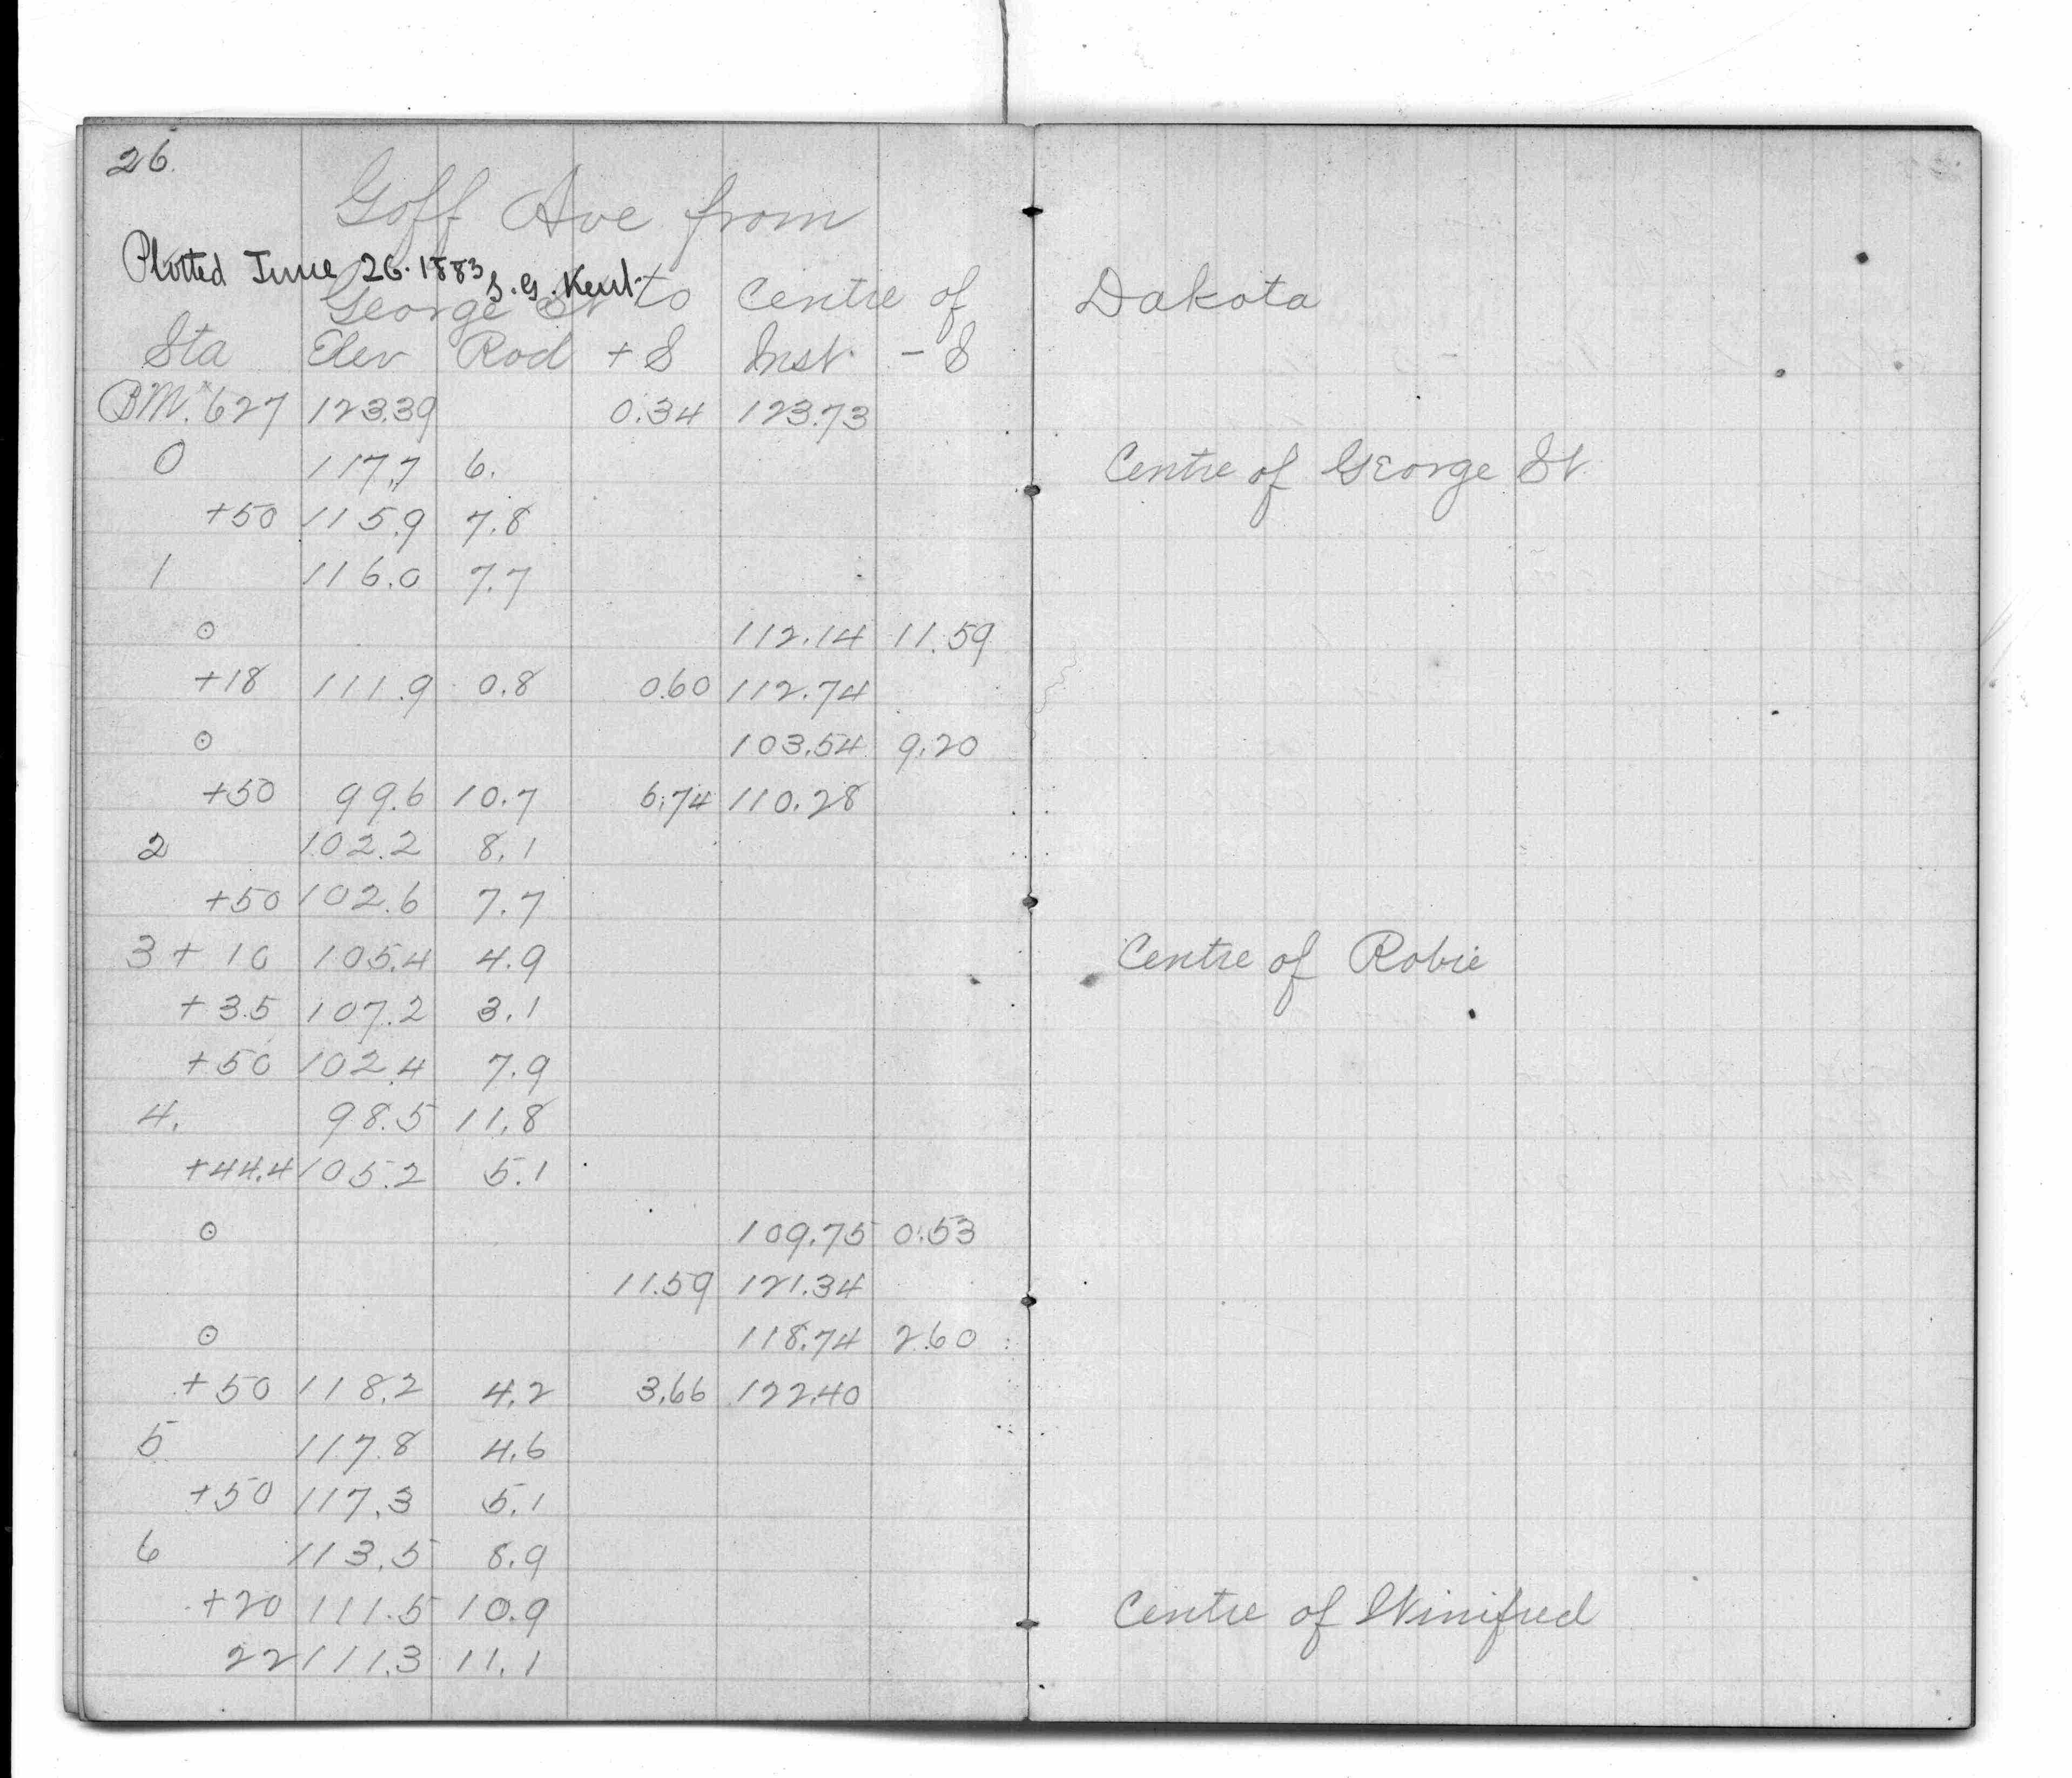 26.
Goff Ave from
Plotted June 26. 1883 S. G. Kent.
George St to Centre of Dakota
Sta Elev Rod + S Inst. - S
BM. 627 123.39 0.34 123.73
0 117.7 6. Centre of George St.
+50 115.9 7.8
1 116.0 7.7
⊙ 112.14 11.59
+18 111.9 0.8 0.60 112.74
⊙ 103.54 9.20
+50 99.6 10.7 6.74 110.28
2 102.2 8.1
+50 102.6 7.7
3 + 10 105.4 4.9 Centre of Robie
+ 35 107.2 3.1
+50 102.4 7.9
4. 98.5 11.8
+44.4 105.2 5.1
⊙ 109.75 0.53
11.59 121.34
⊙ 118.74 2.60
+50 118.2 4.2 3.66 122.40
5 117.8 4.6
+50 117.3 5.1
6 113.5 8.9
+20 111.5 10.9 Centre of Winifred
22 111.3 11.1